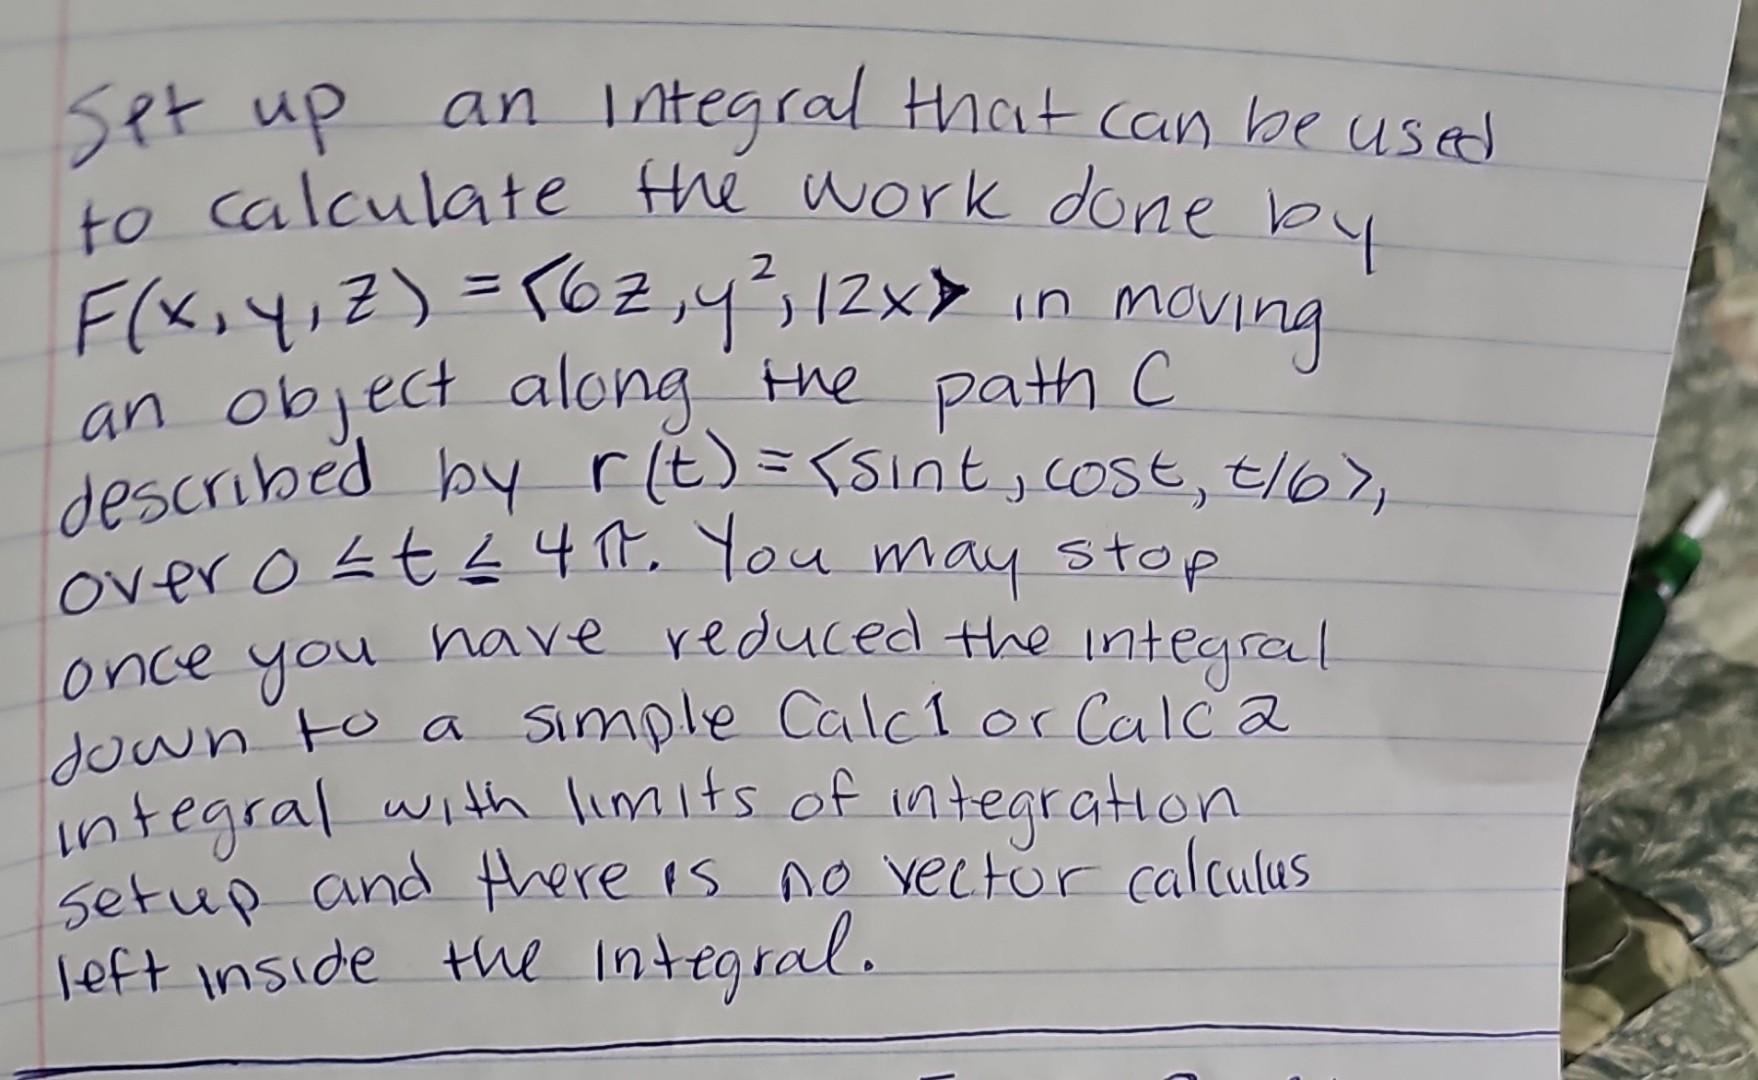 Set up an integral that can be used
to calculate the work done by
F(x,y,z) = <6z, y², 12x> in moving
an object along the path C
described by r(t) = <sint, cost, t/6>,
over 0 ≤ t ≤ 4π. You may stop
once you have reduced the integral
down to a simple Calc 1 or Calc 2
integral with limits of integration
setup and there is no vector calculus
left inside the integral.